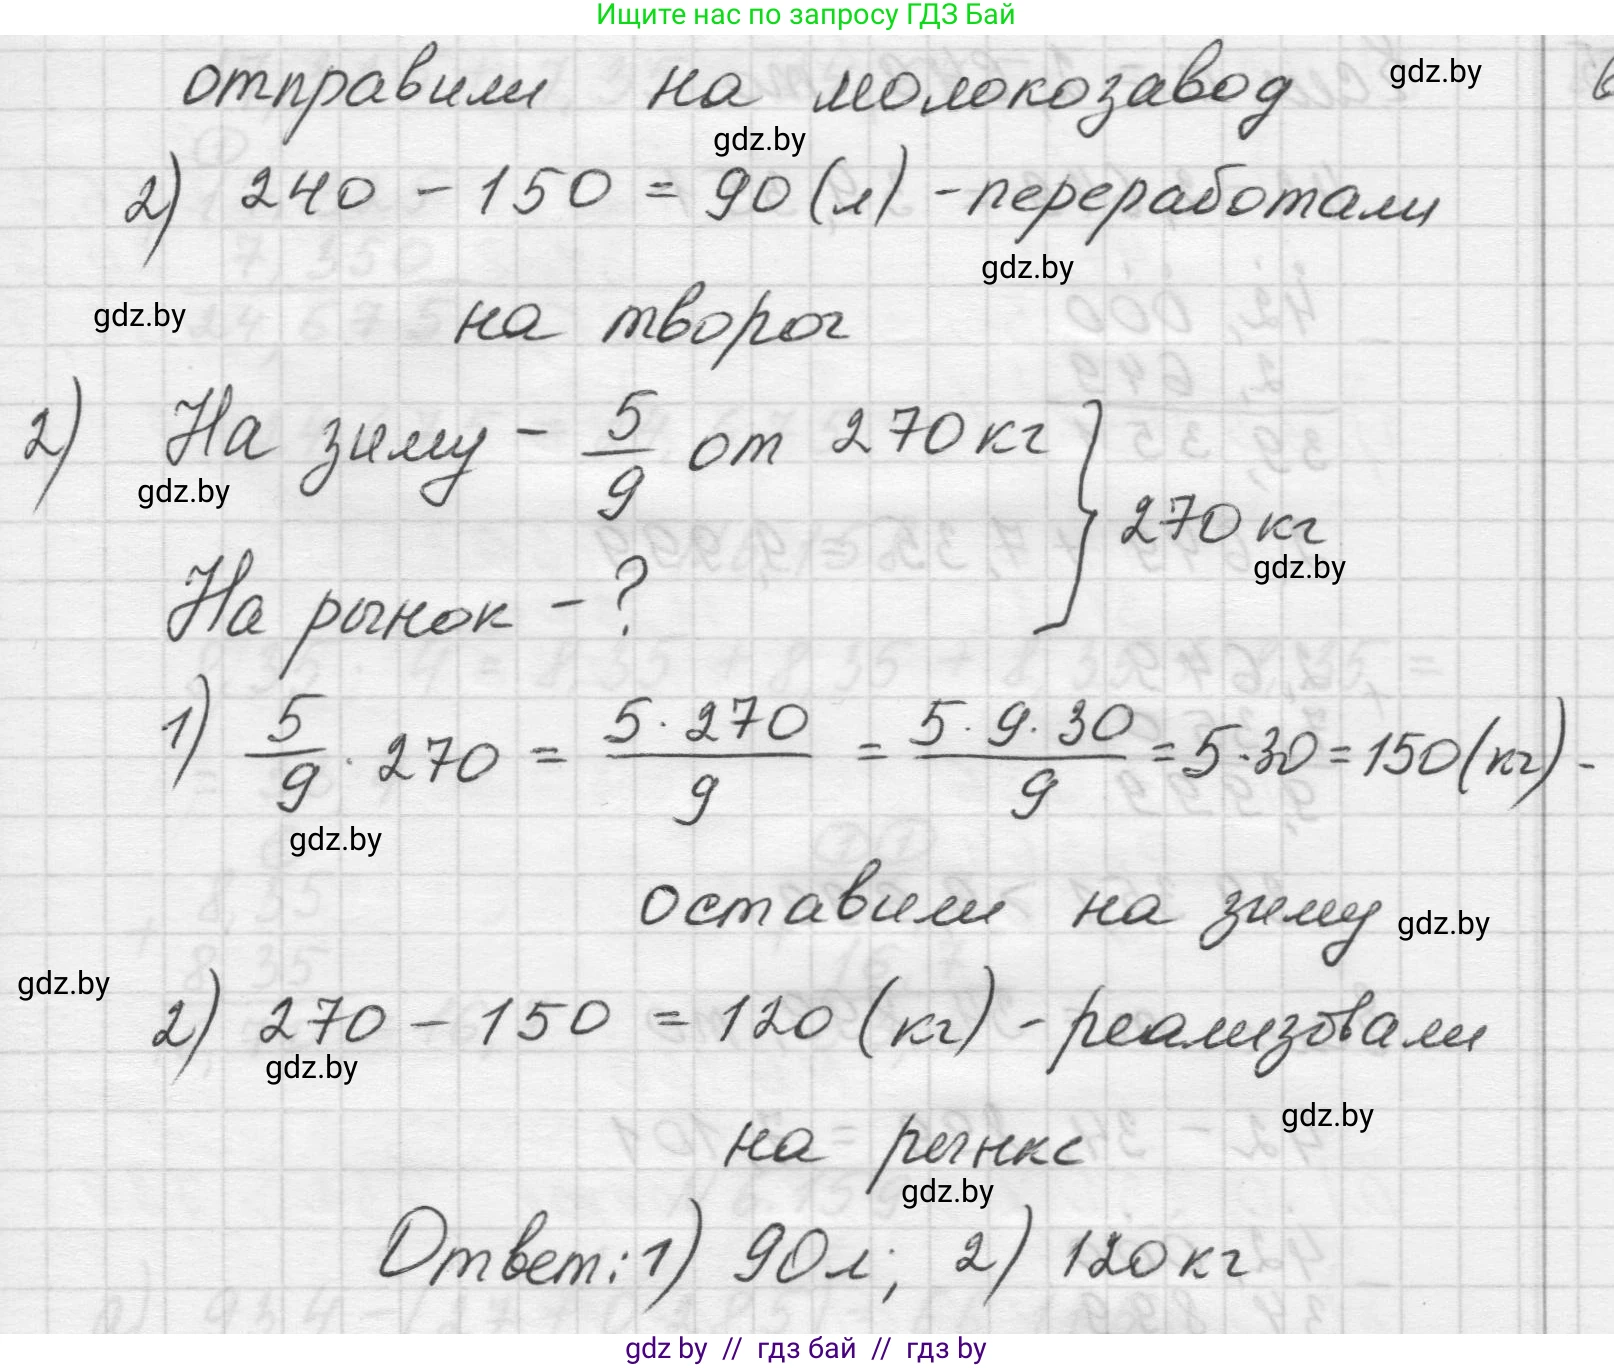 Ищите нас по запросу ГДЗ Бай
отправили на молокозавод gdz.by
gdz.by
2) 240 - 150 = 90 (л) - переработали
gdz.by
gdz.by
на творог
2) На зиму - 5/9 от 270 кг } 270 кг
gdz.by
gdz.by
На рынок - ?
1) 5/9 · 270 = 5 · 270/9 = 5 · 9 · 30/9 = 5 · 30 = 150 (кг) -
gdz.by
оставили на зиму gdz.by
gdz.by
2) 270 - 150 = 120 (кг) - реализовали
gdz.by
gdz.by
на рынке
gdz.by
Ответ: 1) 90 л; 2) 120 кг
gdz by // гдз бай // гдз by